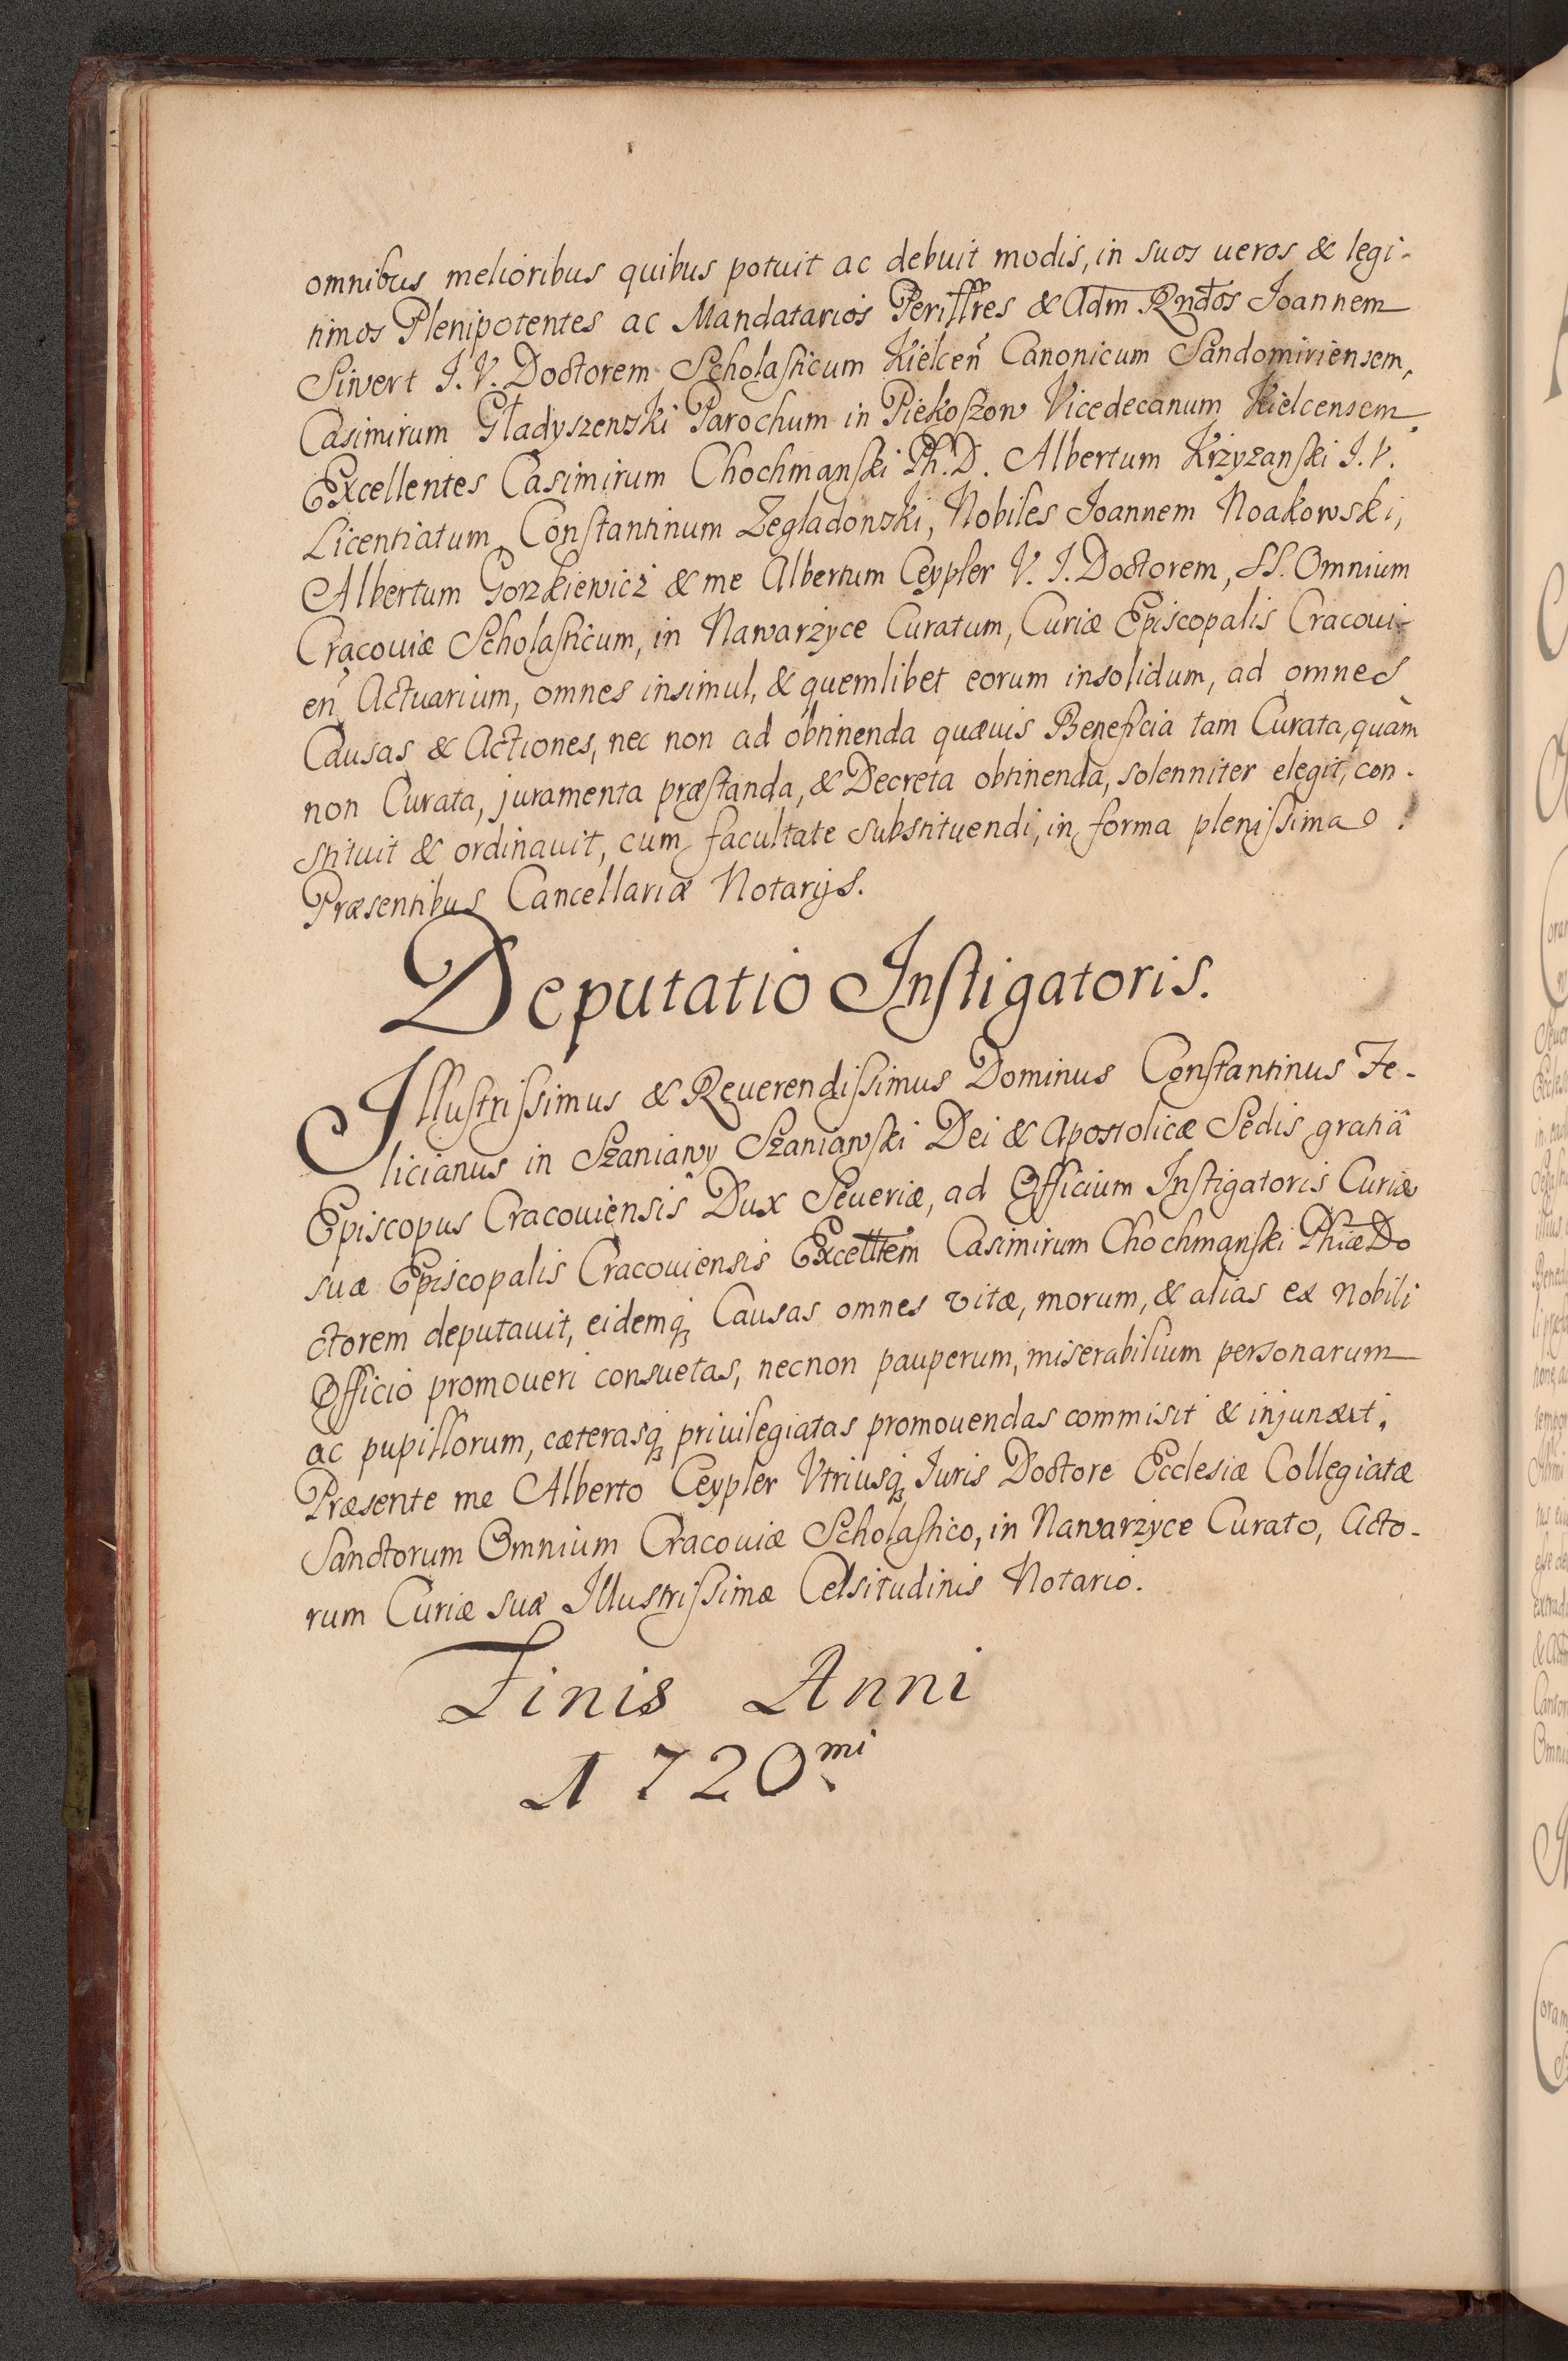 omnibus melioribus quibus potuit ac debuit modis, in suos ueros & legi-
timos Plenipotentes ac Mandatarios Perillres & Adm Rndos Joannem
Sivert J. V. Doctorem Scholasticum Kielcen̄ Canonicum Sandomiriensem,
Casimirum Gładyszewski Parochum in Piekoszow Vicedecanum Kielcensem.
Excellentes Casimirum Chochmanski Ph. D. Albertum Krzyzanski J. V.
Licentiatum, Constantinum Zegladowski, Nobiles Joannem Noakowski,
Albertum Gorzkiewicz & me Albertum Ceypler V. J. Doctorem, SS. Omnium
Cracouiæ Scholasticum, in Nawarzyce Curatum, Curiæ Episcopalis Cracoui-
en̄ Actuarium, omnes insimul, & quemlibet eorum insolidum, ad omnes
Causas & Actiones, nec non ad obtinenda quæuis Beneficia tam Curata, quàm
non Curata, juramenta præstanda, & Decreta obtinenda, solenniter elegit, con-
stituit & ordinauit, cum facultate substituendi, in forma plenissima.
Præsentibus Cancellariæ Notarijs.
Deputatio Instigatoris.
Illustrissimus & Reuerendissimus Dominus Constantinus Fe-
licianus in Szaniawy Szaniawski Dei & Apostolicæ Sedis gratiâ
Episcopus Cracouiensis Dux Seueriæ, ad Officium Instigatoris Curiæ
suæ Episcopalis Cracouiensis Excellтem Casimirum Chochmanski Phiæ Do
ctorem deputauit, eidemq̨ Causas omnes vitæ, morum, & alias ex nobili
Officio promoueri consuetas, necnon pauperum, miserabilium personarum
ac pupillorum, cæterasq̨ priuilegiatas promouendas commisit & injunxit.
Præsente me Alberto Ceypler Vtriusq̨ Juris Doctore Ecclesiæ Collegiatæ
Sanctorum Omnium Cracouiæ Scholastico, in Nawarzyce Curato, Acto-
rum Curiæ suæ Illustrissimæ Celsitudinis Notario.
Finis Anni
1720mi